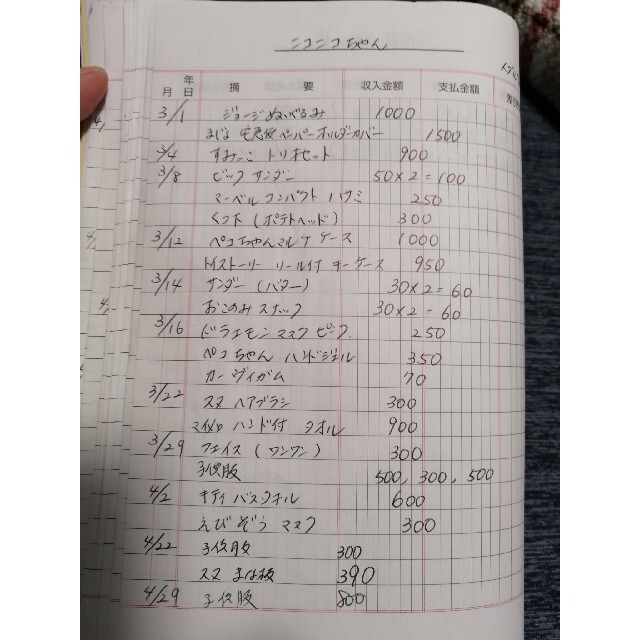 ニコニコちゃん
年
月 日 摘 要 収入金額 支払金額
3/1 ジョージぬいぐるみ 1000
まじょ 宅急便ペーパーホルダーカバー 1500
3/4 すみっこ トリオセット 900
3/8 ビック サンダー 50×2=100
マーベル コンパクト ハサミ 250
くつ下 (ポテトヘッド) 300
3/12 ペコちゃんマルチケース 1000
トイストーリー リール付 キーケース 950
3/14 サンダー (バター) 30×2=60
おこのみスナック 30×2=60
3/16 ドラえもん マスク ピンク 250
ペコちゃん ハンドジェル 350
カービィガム 70
3/22 スヌ ヘアブラシ 300
ハンド付 タオル 900
3/29 フェイス (ワンワン) 300
子供服 500, 300, 500
4/2 キティ バスタオル 600
えびぞう マスク 300
4/22 子供服 300
スヌ まな板 390
4/29 子供服 800